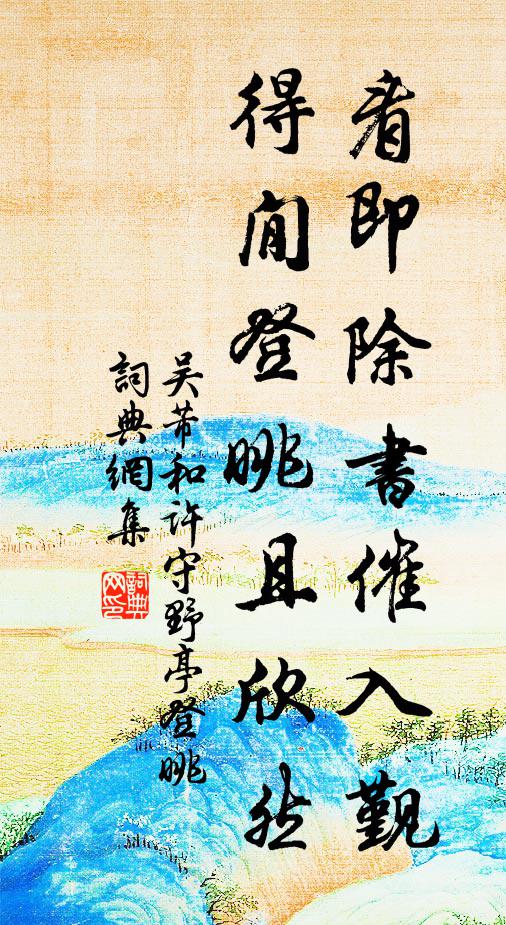 看即除書催入覲
得閒登眺且欣然
吳芾和許守野亭登眺
詞典網集
詞典網印